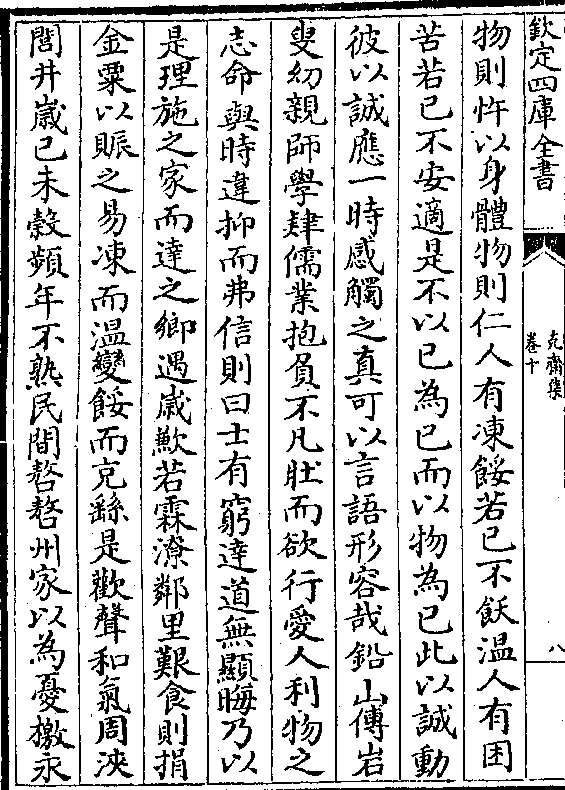 欽定四庫全書
克齋集
卷十
八
物則忤以身體物則仁人有凍餒若已不飫溫人有困
苦若已不安適是不以已為已而以物為已此以誠動
彼以誠應一時感觸之真可以言語形容哉鉛山傅岩
叟幼親師學肄儒業抱負不凡壯而欲行愛人利物之
志命與時違抑而弗信則曰士有窮達道無顯晦乃以
是理施之家而達之鄉遇嵗歉若霖潦鄰里艱食則捐
金粟以賑之易凍而溫變餒而充繇是歡聲和氣周浹
閭井嵗已未穀頻年不熟民間嗸嗸州家以為憂檄永